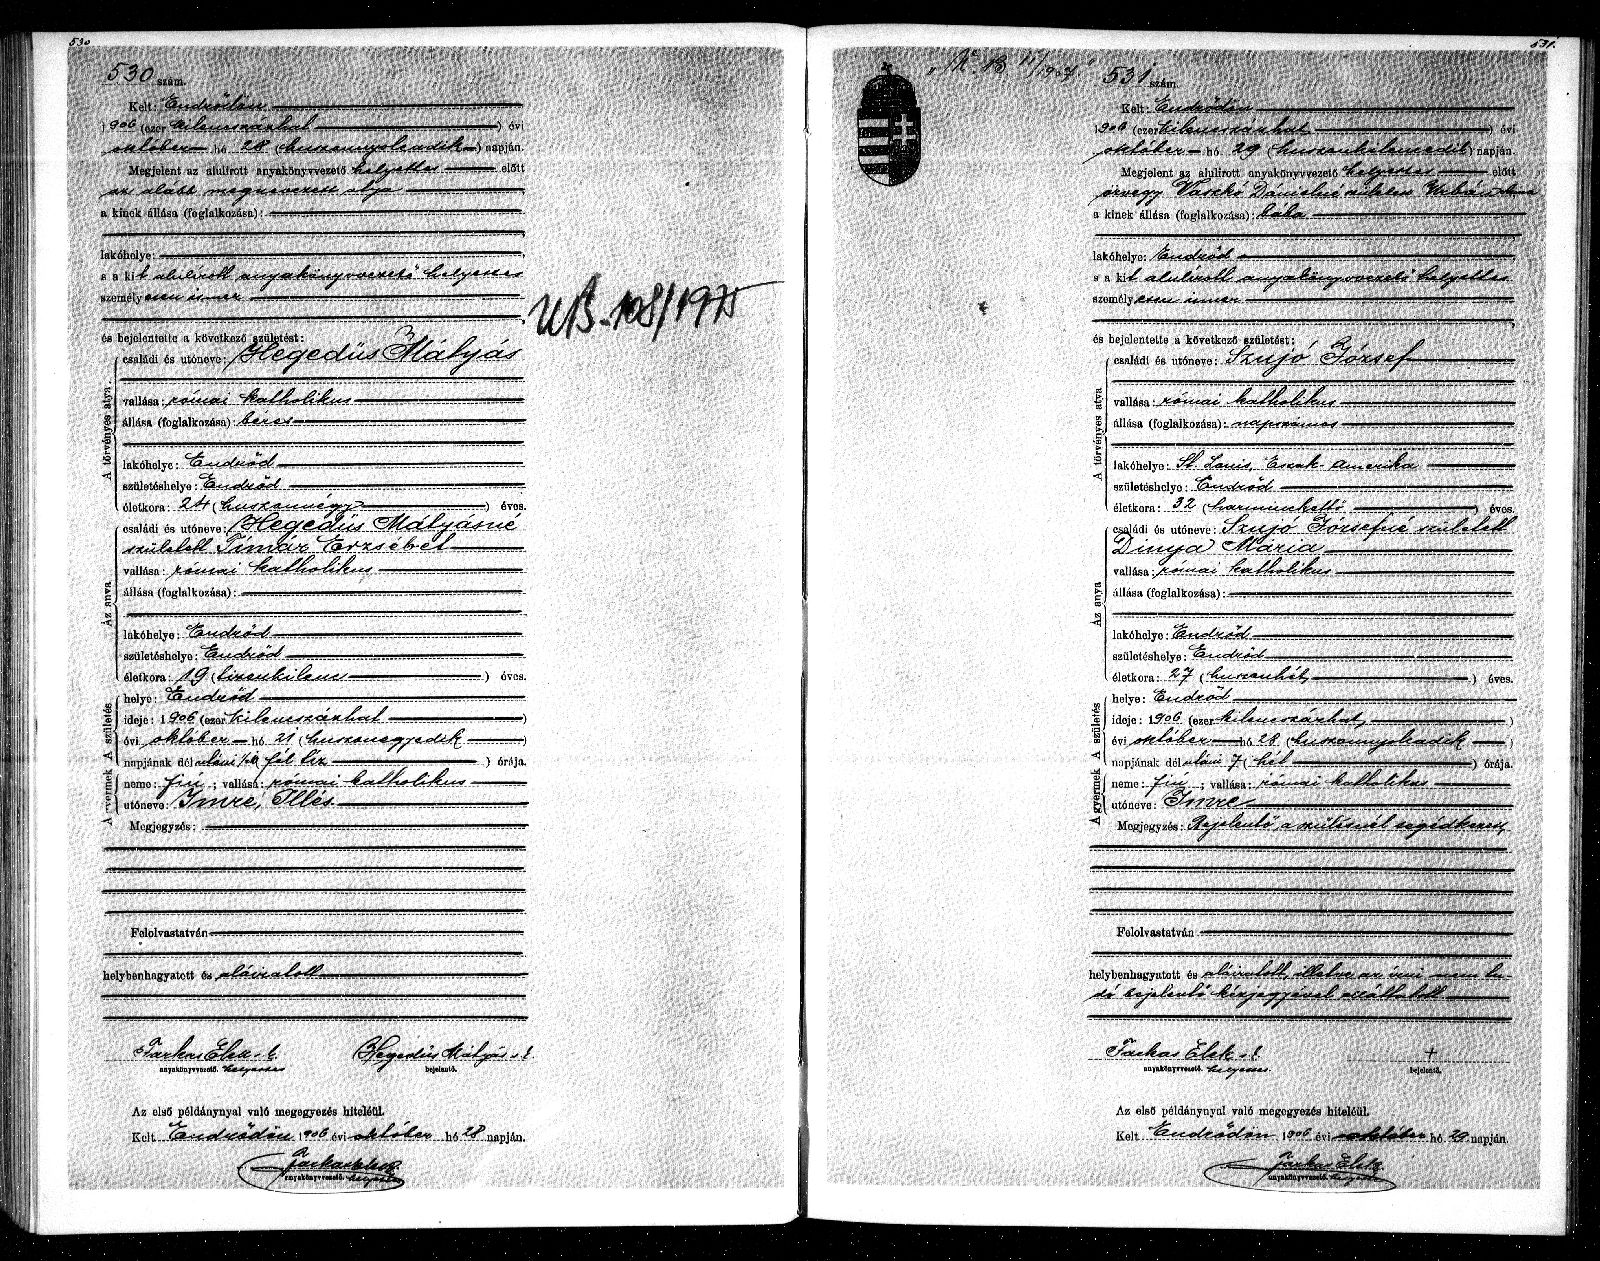 530
530 szám.
Kelt: Endrődön
1906 (ezer kilencszázhat) évi
október hó 28 (huszonnyolcadik) napján.
Megjelent az alulirott anyakönyvvezető helyettes előtt
az alább megnevezett atya
a kinek állása (foglalkozása):
lakóhelye:
s a kit alulirott anyakönyvvezető helyettes
személyesen ismer
és bejelentette a következő születést:
A törvényes atya
családi és utóneve: Hegedüs Mátyás
vallása: római katholikus
állása (foglalkozása): béres
lakóhelye: Endrőd
születéshelye: Endrőd
életkora: 24 (huszonnégy) éves.
Az anya
családi és utóneve: Hegedüs Mátyásné
született Timár Erzsébet
vallása: római katholikus
állása (foglalkozása):
lakóhelye: Endrőd
születéshelye: Endrőd
életkora: 19 (tizenkilenc) éves.
A születés
helye: Endrőd
ideje: 1906 (ezer kilencszázhat)
évi október hó 21 (huszonegyedik)
napjának délutáni (fél tíz) órája.
A gyermek
neme: fiú; vallása: római katholikus
utóneve: Imre, Illés
Megjegyzés:
Felolvastatván
helybenhagyatott és aláiratott
Farkas Elek s. k. Hegedüs Mátyás s. k.
anyakönyvvezető helyettes bejelentő.
Az első példánynyal való megegyezés hiteléül.
Kelt Endrődön 1906 évi október hó 28 napján.
Farkas Elek
anyakönyvvezető helyettes
108/1975
531.
531 szám.
Kelt: Endrődön
1906 (ezer kilencszázhat) évi
október hó 29 (huszonkilencedik) napján.
Megjelent az alulirott anyakönyvvezető helyettes előtt
özvegy Vaszkó Dánielné született Urbán
a kinek állása (foglalkozása): bába
lakóhelye: Endrőd
s a kit alulirott anyakönyvvezető helyettes
személyesen ismer
és bejelentette a következő születést:
A törvényes atya
családi és utóneve: Szujó József
vallása: római katholikus
állása (foglalkozása): napszámos
lakóhelye: St. Louis, Eszak-Amerika
születéshelye: Endrőd
életkora: 32 (harminckettő) éves.
Az anya
családi és utóneve: Szujó Józsefné született
Dinya Mária
vallása: római katholikus
állása (foglalkozása):
lakóhelye: Endrőd
születéshelye: Endrőd
életkora: 27 (huszonhét) éves.
A születés
helye: Endrőd
ideje: 1906 (ezer kilencszázhat)
évi október hó 28 (huszonnyolcadik)
napjának délutáni 7 (hét) órája.
A gyermek
neme: fiú; vallása: római katholikus
utóneve: Imre
Megjegyzés: Bejelentő a szülésnél segédkezett
Felolvastatván
helybenhagyatott és aláiratott, illetve az irni nem tu-
dó bejelentő kézjegyével elláttatott
Farkas Elek s. k. +
anyakönyvvezető helyettes. bejelentő.
Az első példánynyal való megegyezés hiteléül.
Kelt Endrődön 1906 évi október hó 29 napján.
Farkas Elek
anyakönyvvezető helyettes